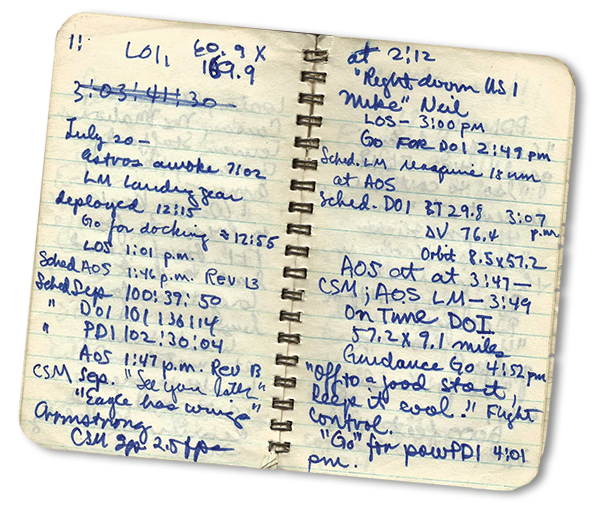 1:
LOI, 60.9 X
169.9
3:03:41:30
July 20 -
astros awoke 7:02
LM Landing gear
deployed 12:15
Go for docking ≈ 12:55
LOS 1:01 p.m.
Sched AOS 1:46 p.m. REV 13
Sched Sep 100:39:50
" DOI 101:36:14
" PDI 102:30:04
AOS 1:47 p.m. Rev 13
CSM sep. "See you later"
"Eagle has wings"
Armstrong
CSM 2.5 fps
at 2:12
"Right down US 1
Mike" Neil
LOS - 3:00 pm
GO FOR DOI 2:49 pm
Sched. LM 18 nm
at AOS
Sched. DOI BT 29.8 3:07
p.m.
ΔV 76.4
Orbit 8.5 x 57.2
AOS at at 3:47 -
CSM; AOS LM - 3:49
On Time DOI.
57.2 x 9.1 miles
Guidance Go 4:52 pm
"Off to a good start,
keep it cool." Flight
Control.
"Go" for PDI 4:01
pm.